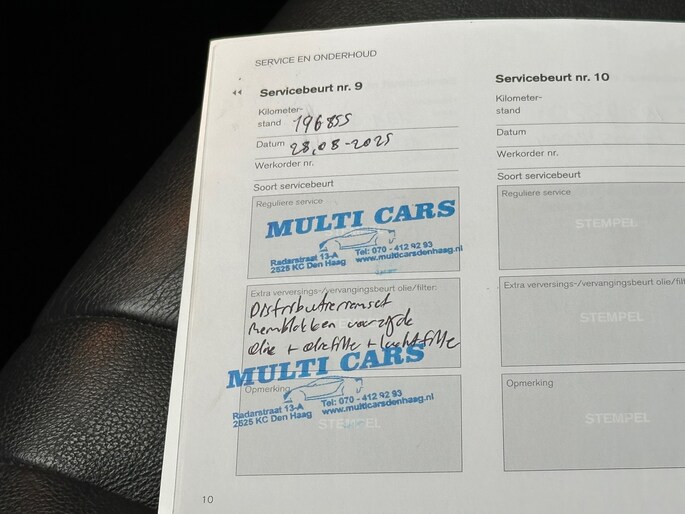 SERVICE EN ONDERHOUD
Servicebeurt nr. 9
Kilometer-
stand 196855
Datum 28,08-2025
Werkorder nr.
Soort servicebeurt
Reguliere service
MULTI CARS
Radarstraat 13-A
2525 KC Den Haag
Tel: 070 - 412 92 93
www.multicarsdenhaag.nl
Extra verversings-/vervangingsbeurt olie/filter:
Distributieriemset
Remblokken voorzijde
olie + oliefilter + luchtfilter
MULTI CARS
Opmerking
Radarstraat 13-A
2525 KC Den Haag
Tel: 070 - 412 92 93
www.multicarsdenhaag.nl
STEMPEL
10
Servicebeurt nr. 10
Kilometer-
stand
Datum
Werkorder nr.
Soort servicebeurt
Reguliere service
STEMPEL
Extra verversings-/vervangingsbeurt olie/filter:
STEMPEL
Opmerking
STEMPEL